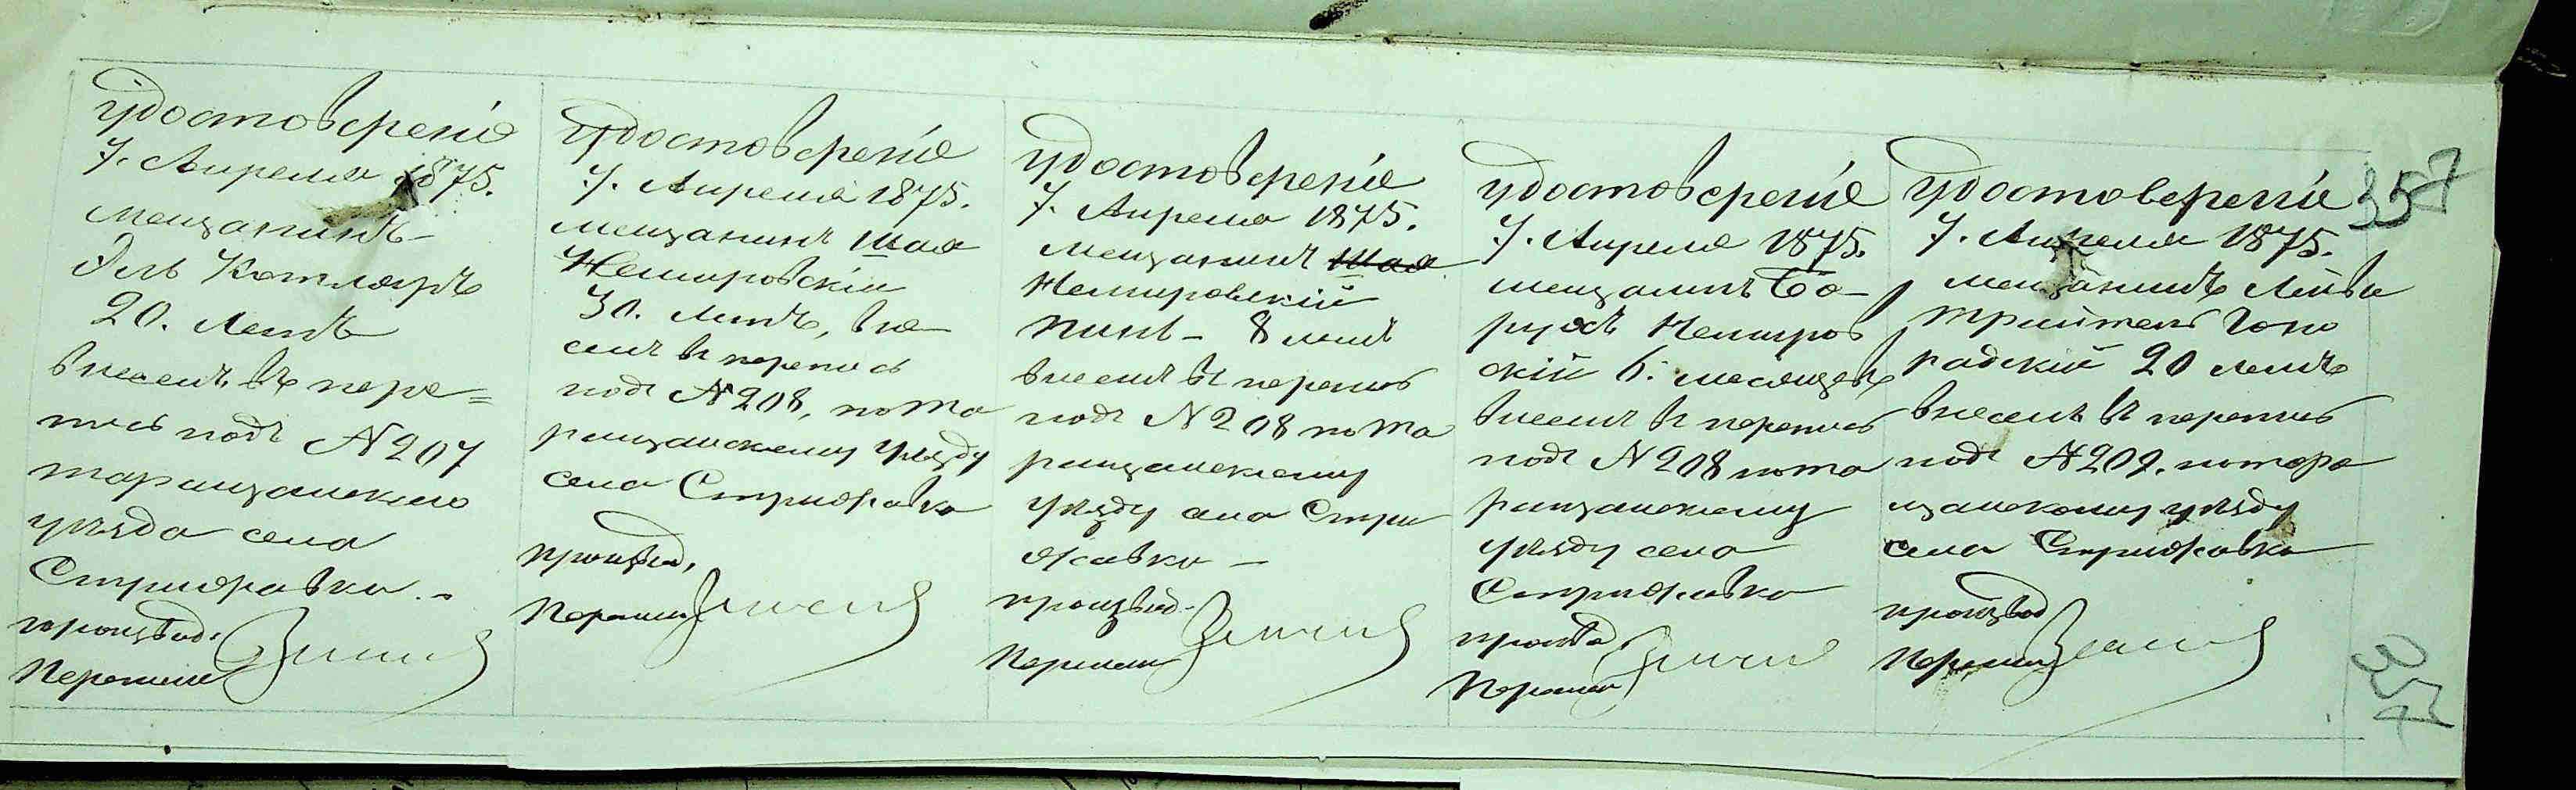 Удостоверенiе
7. Апреля 1875.
Мещанинъ
Эль Котляръ
20. летъ
внесенъ въ пере=
пись подъ № 207
таращанскаго
уѣзда села
Стрижавки. -
производ.
Переписи
Удостоверенiе
7. Апреля 1875.
мещанинъ Шая
Немировскiй
30. летъ, вне
сенъ въ перепись
подъ № 208, по та
ращанскому уѣзду
села Стрижавка
производ.
Переписи
Удостоверенiе
7. Апреля 1875.
мещанинъ Шая
Немировскiй
Пинь - 8 летъ
внесенъ въ перепись
подъ N 208 по та
ращанскому
уѣзду села Стри
жавки -
производ.
Переписи
Удостоверенiе
7. Апреля 1875.
мещанинъ Бо-
рухъ Немиров
скiй 6. месяцевъ
внесенъ въ перепись
подъ N 208 по та
ращанскому
уѣзду села
Стрижавка
Переписи
Удостоверенiе
7. Апреля 1875.
мещанинъ Лейви
радскiй 20 летъ
внесенъ въ перепись
подъ № 209. по тара
щанскому уѣзду
села Стрижавка
производ
Переписи
357
357